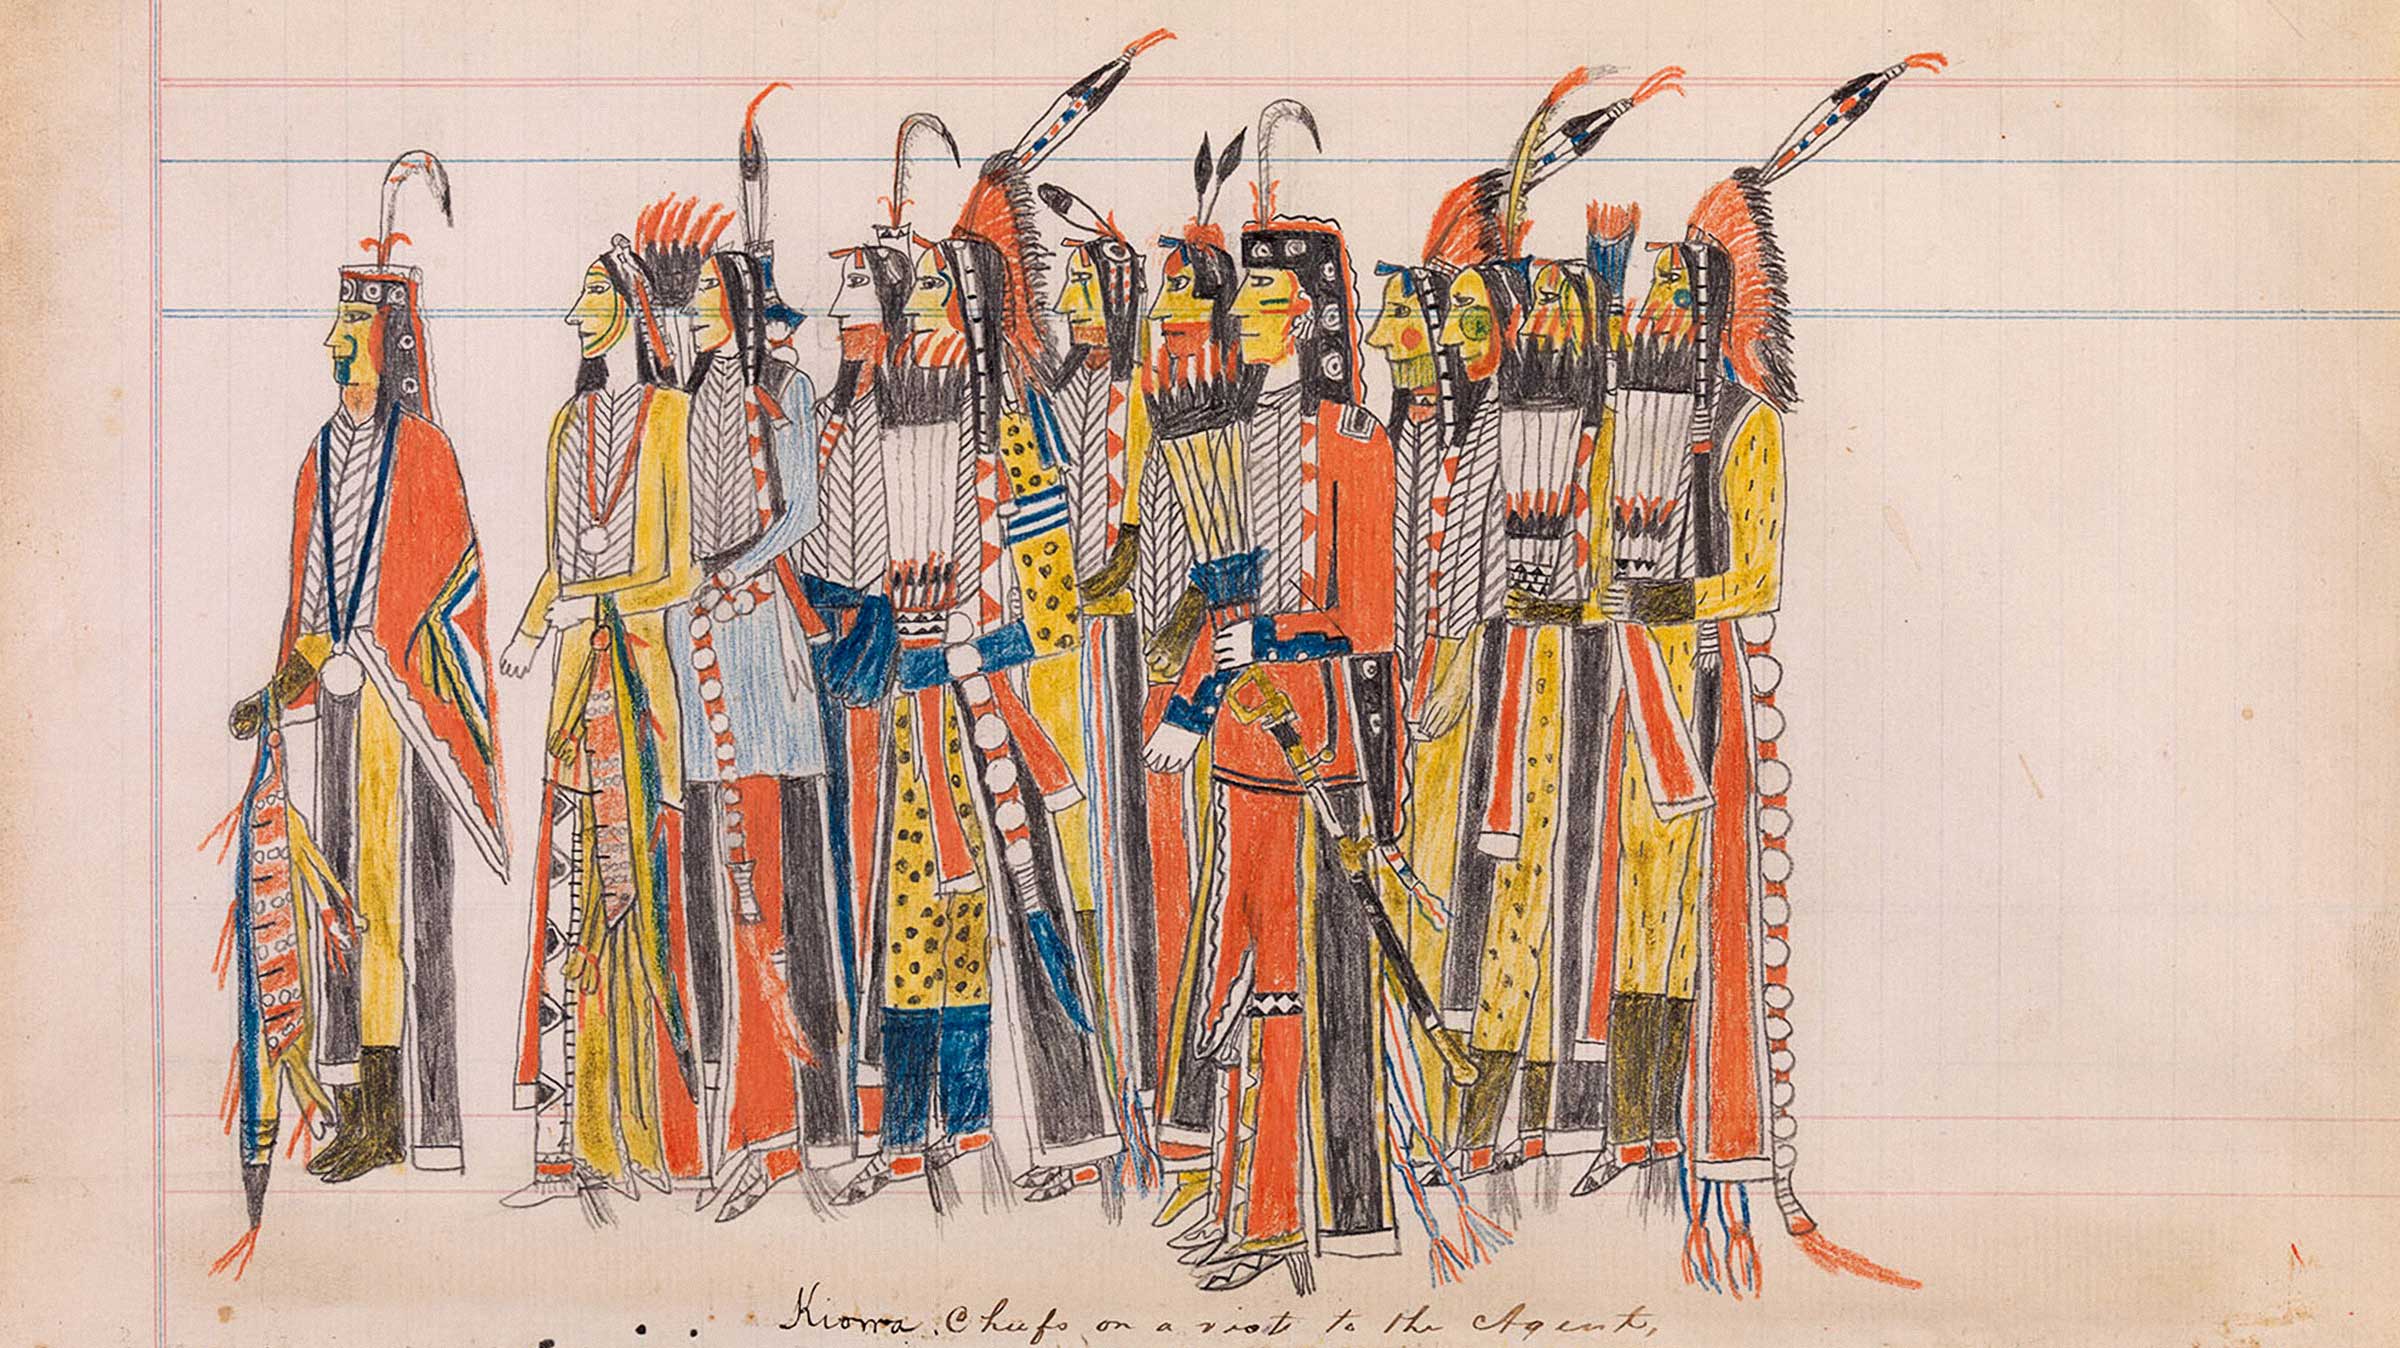 Kiowa Chiefs on a visit to the Agent,